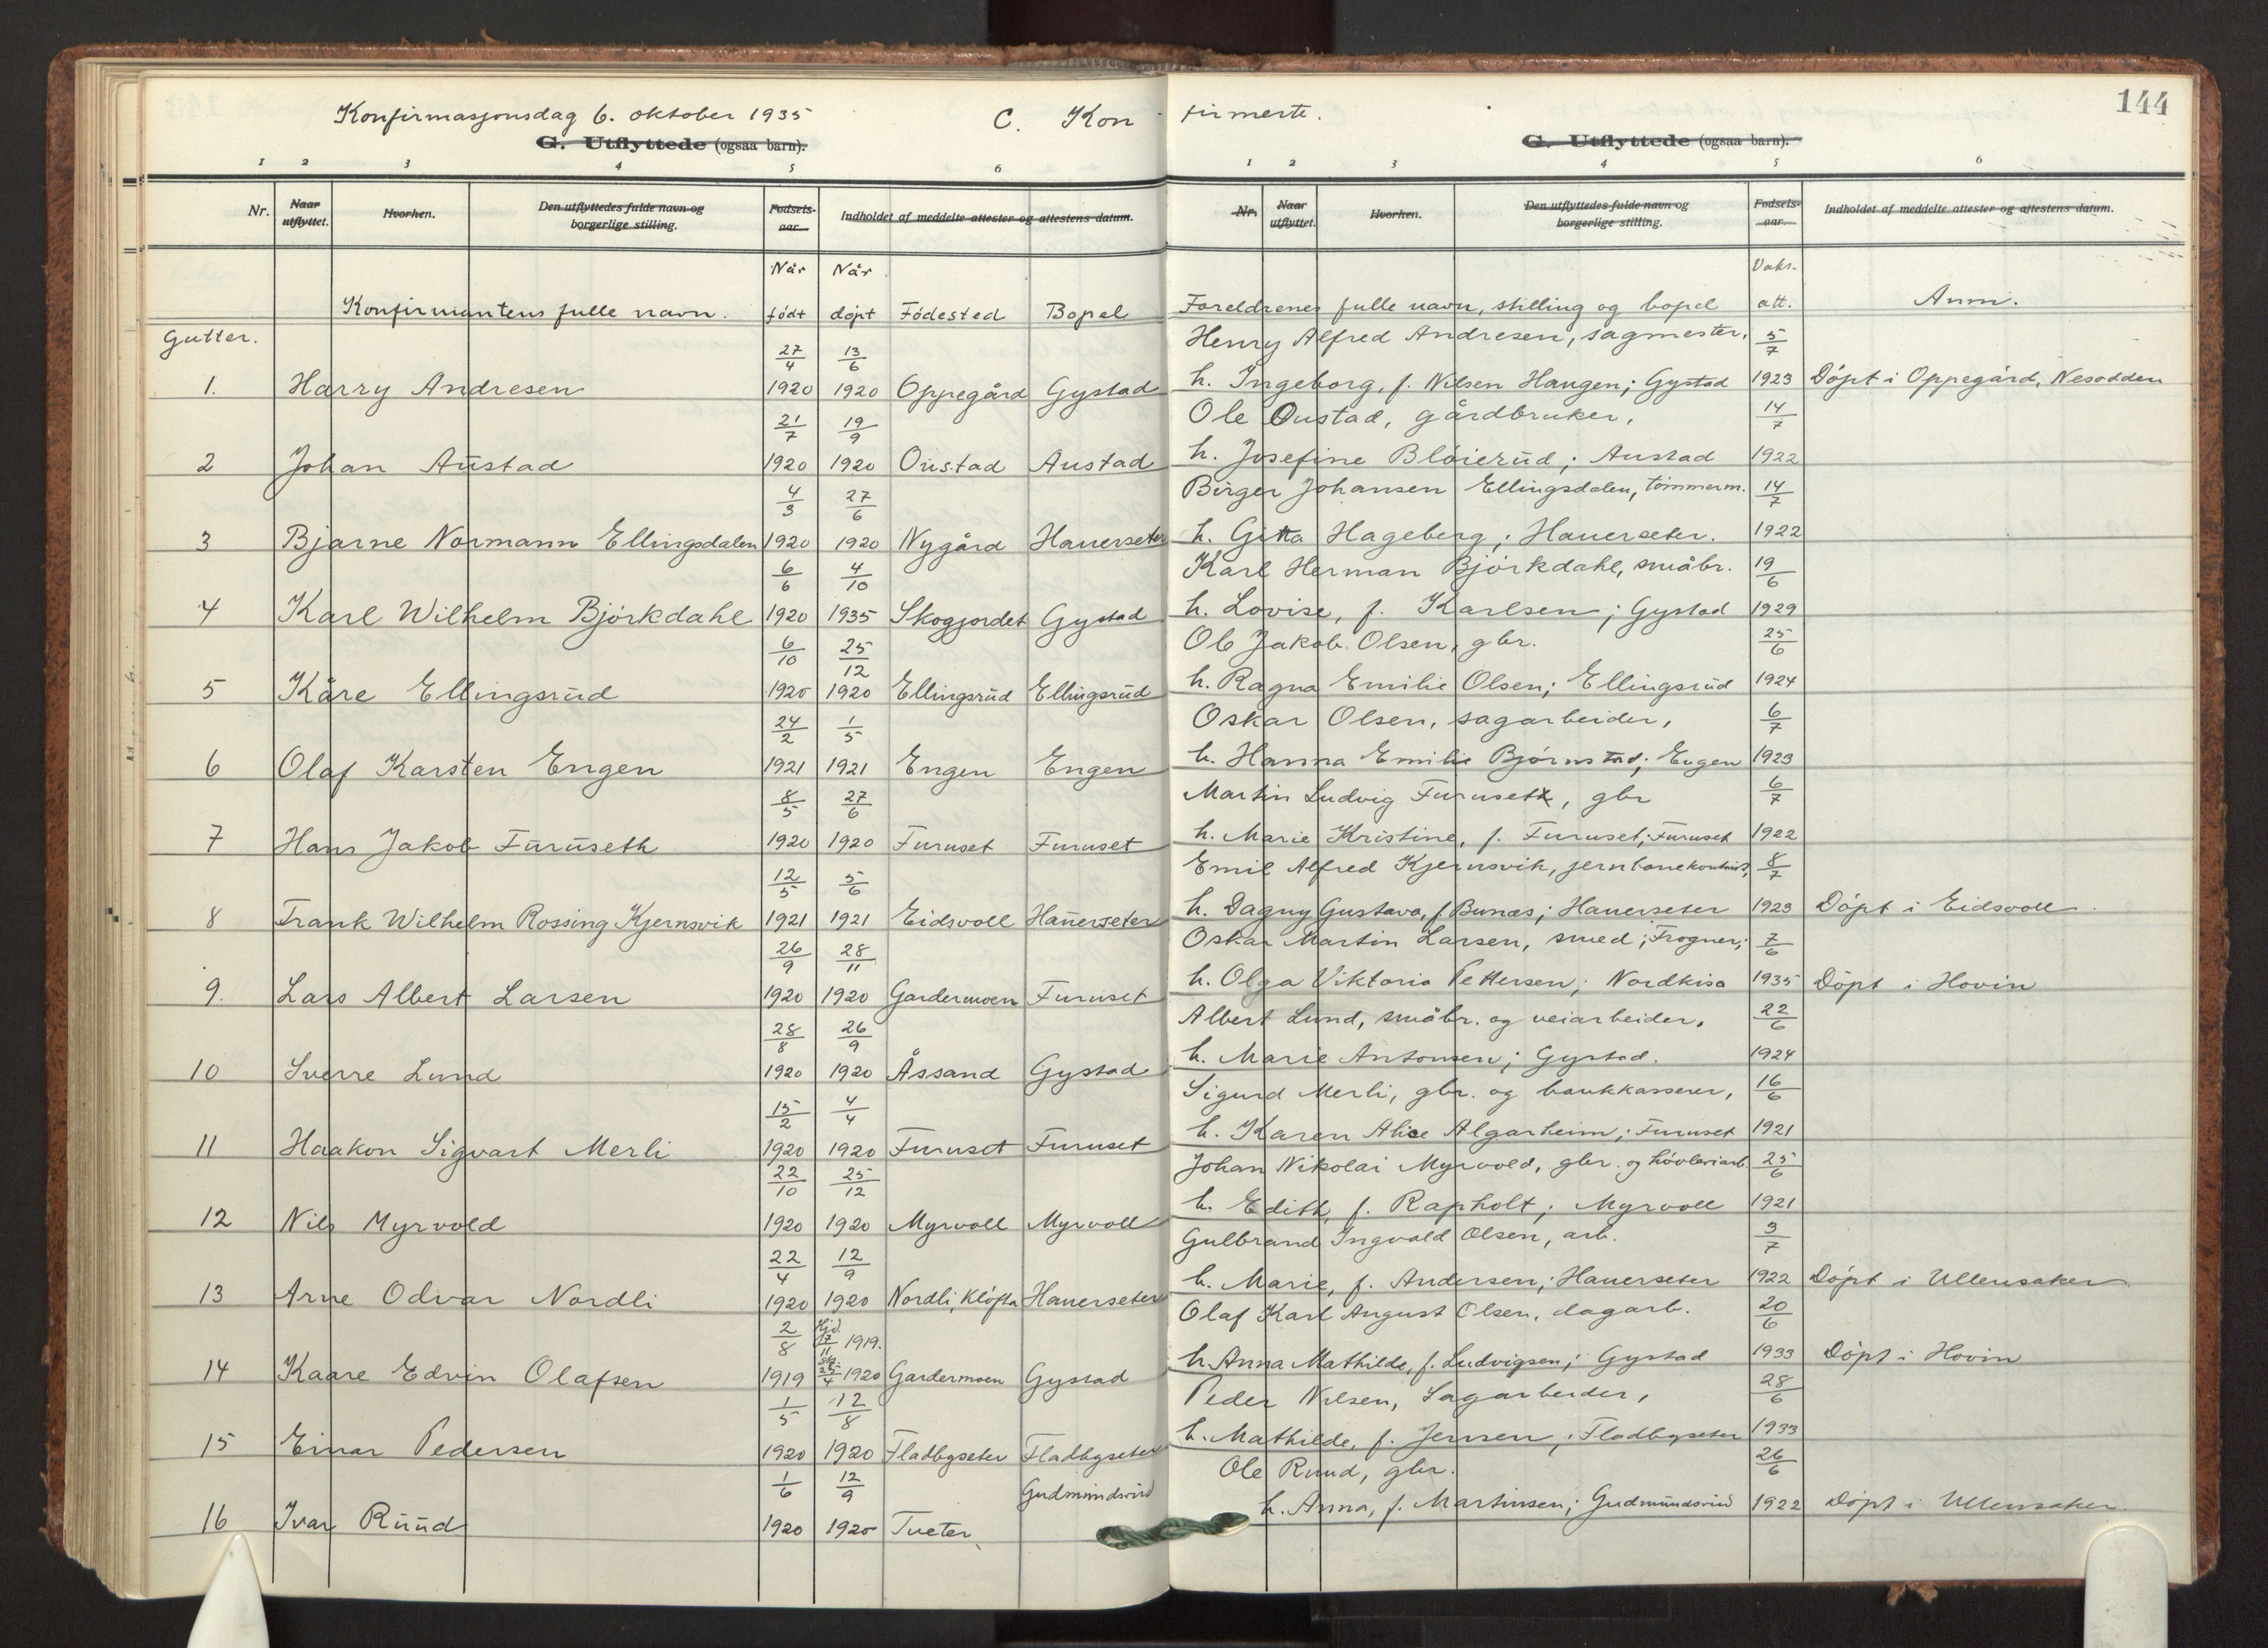 Konfirmasjonsdag 6. oktober 1935 C. Kon firmerte. 144
G. Utflyttede (ogsaa barn). G. Utflyttede (ogsaa barn).
1 2 3 4 5 6 1 2 3 4 5 6
Nr. Naar utflyttet. Hvorhen. Den utflyttedes fulde navn og borgerlige stilling. Fødsels-aar. Indholdet af meddelte attester og attestens datum. Nr. Naar utflyttet. Hvorhen. Den utflyttedes fulde navn og borgerlige stilling. Fødsels-aar. Indholdet af meddelte attester og attestens datum.
Når Når Vaks.
Konfirmantens fulle navn. født døpt Fødested Bopel Foreldrenes fulle navn, stilling og bopel att. Anm.
Gutter.
27/4 13/6 Henry Alfred Andresen, sagmester, 5/7
1. Harry Andresen 1920 1920 Oppegård Gystad h. Ingeborg, f. Nilsen Haugen; Gystad 1923 Döpt i Oppegård, Nesodden
21/7 19/9 Ole Oustad, gårdbruker, 14/7
2 Johan Austad 1920 1920 Oustad Austad h. Josefine Bløierud; Austad 1922
4/3 27/6 Birger Johansen Ellingsdalen, tömmerm. 14/7
3 Bjarne Normann Ellingsdalen 1920 1920 Nygård Hauerseter h. Gitta Hageberg; Hauerseter. 1922
6/6 4/10 Karl Herman Björkdahl, småbr. 19/6
4 Karl Wilhelm Björkdahl 1920 1935 Skogjordet Gystad h. Lovise, f. Karlsen; Gystad 1929
6/10 25/12 Ole Jakob Olsen, gbr. 25/6
5 Kåre Ellingsrud 1920 1920 Ellingsrud Ellingsrud h. Ragna Emilie Olsen; Ellingsrud 1924
24/2 1/5 Oskar Olsen, sagarbeider, 6/7
6 Olaf Karsten Engen 1921 1921 Engen Engen h. Hanna Emilie Bjørnstad; Engen 1923
8/5 27/6 Martin Ludvig Furuseth, gbr 6/7
7 Hans Jakob Furuseth 1920 1920 Furuset Furuset h. Marie Kristine, f. Furuset; Furuset 1922
12/5 5/6 Emil Alfred Kjernsvik, jernbanekontorist, 8/7
8 Frank Wilhelm Rossing Kjernsvik 1921 1921 Eidsvoll Hauerseter h. Dagny Gustava, f. Bunæs; Hauerseter 1923 Döpt i Eidsvoll
26/9 28/11 Oskar Martin Larsen, smed; Frogner; 7/6
9. Lars Albert Larsen 1920 1920 Gardermoen Furuset h. Olga Viktoria Pettersen; Nordkisa 1935 Döpt i Hovin
28/8 26/9 Albert Lund, småbr. og veiarbeider, 22/6
10 Sverre Lund 1920 1920 Åssand Gystad h. Marie Antonsen; Gystad. 1924
15/2 4/4 Sigurd Merli, gbr. og bankkasserer, 16/6
11 Haakon Sigvart Merli 1920 1920 Furuset Furuset h. Karen Alice Algarheim; Furuset 1921
22/10 25/12 Johan Nikolai Myrvold, gbr. og høvleriarb. 25/6
12 Nils Myrvold 1920 1920 Myrvoll Myrvoll h. Edith, f. Rapholt; Myrvoll 1921
22/4 12/9 Gulbrand Ingvald Olsen, arb. 3/7
13 Arne Odvar Nordli 1920 1920 Nordli, Kløfta Hauerseter h. Marie, f. Andersen; Hauerseter 1922 Döpt i Ullensaker
2/8 Hjd. 17/11 1919. Olaf Karl August Olsen, dagarb. 20/6
14 Kaare Edvin Olafsen 1919 stf. 25/4 1920 Gardermoen Gystad h. Anna Mathilde, f. Ludvigsen; Gystad 1933 Döpt i Hovin
1/5 12/8 Peder Nilsen, Sagarbeider, 28/6
15 Einar Pedersen 1920 1920 Fladbyseter Fladbyseter h. Mathilde, f. Jensen; Fladbyseter 1933
1/6 12/9 Gudmundsrud Ole Ruud, gbr. 26/6
16 Ivar Ruud 1920 1920 Tveter h. Anna, f. Martinsen; Gudmundsrud 1922 Döpt i Ullensaker